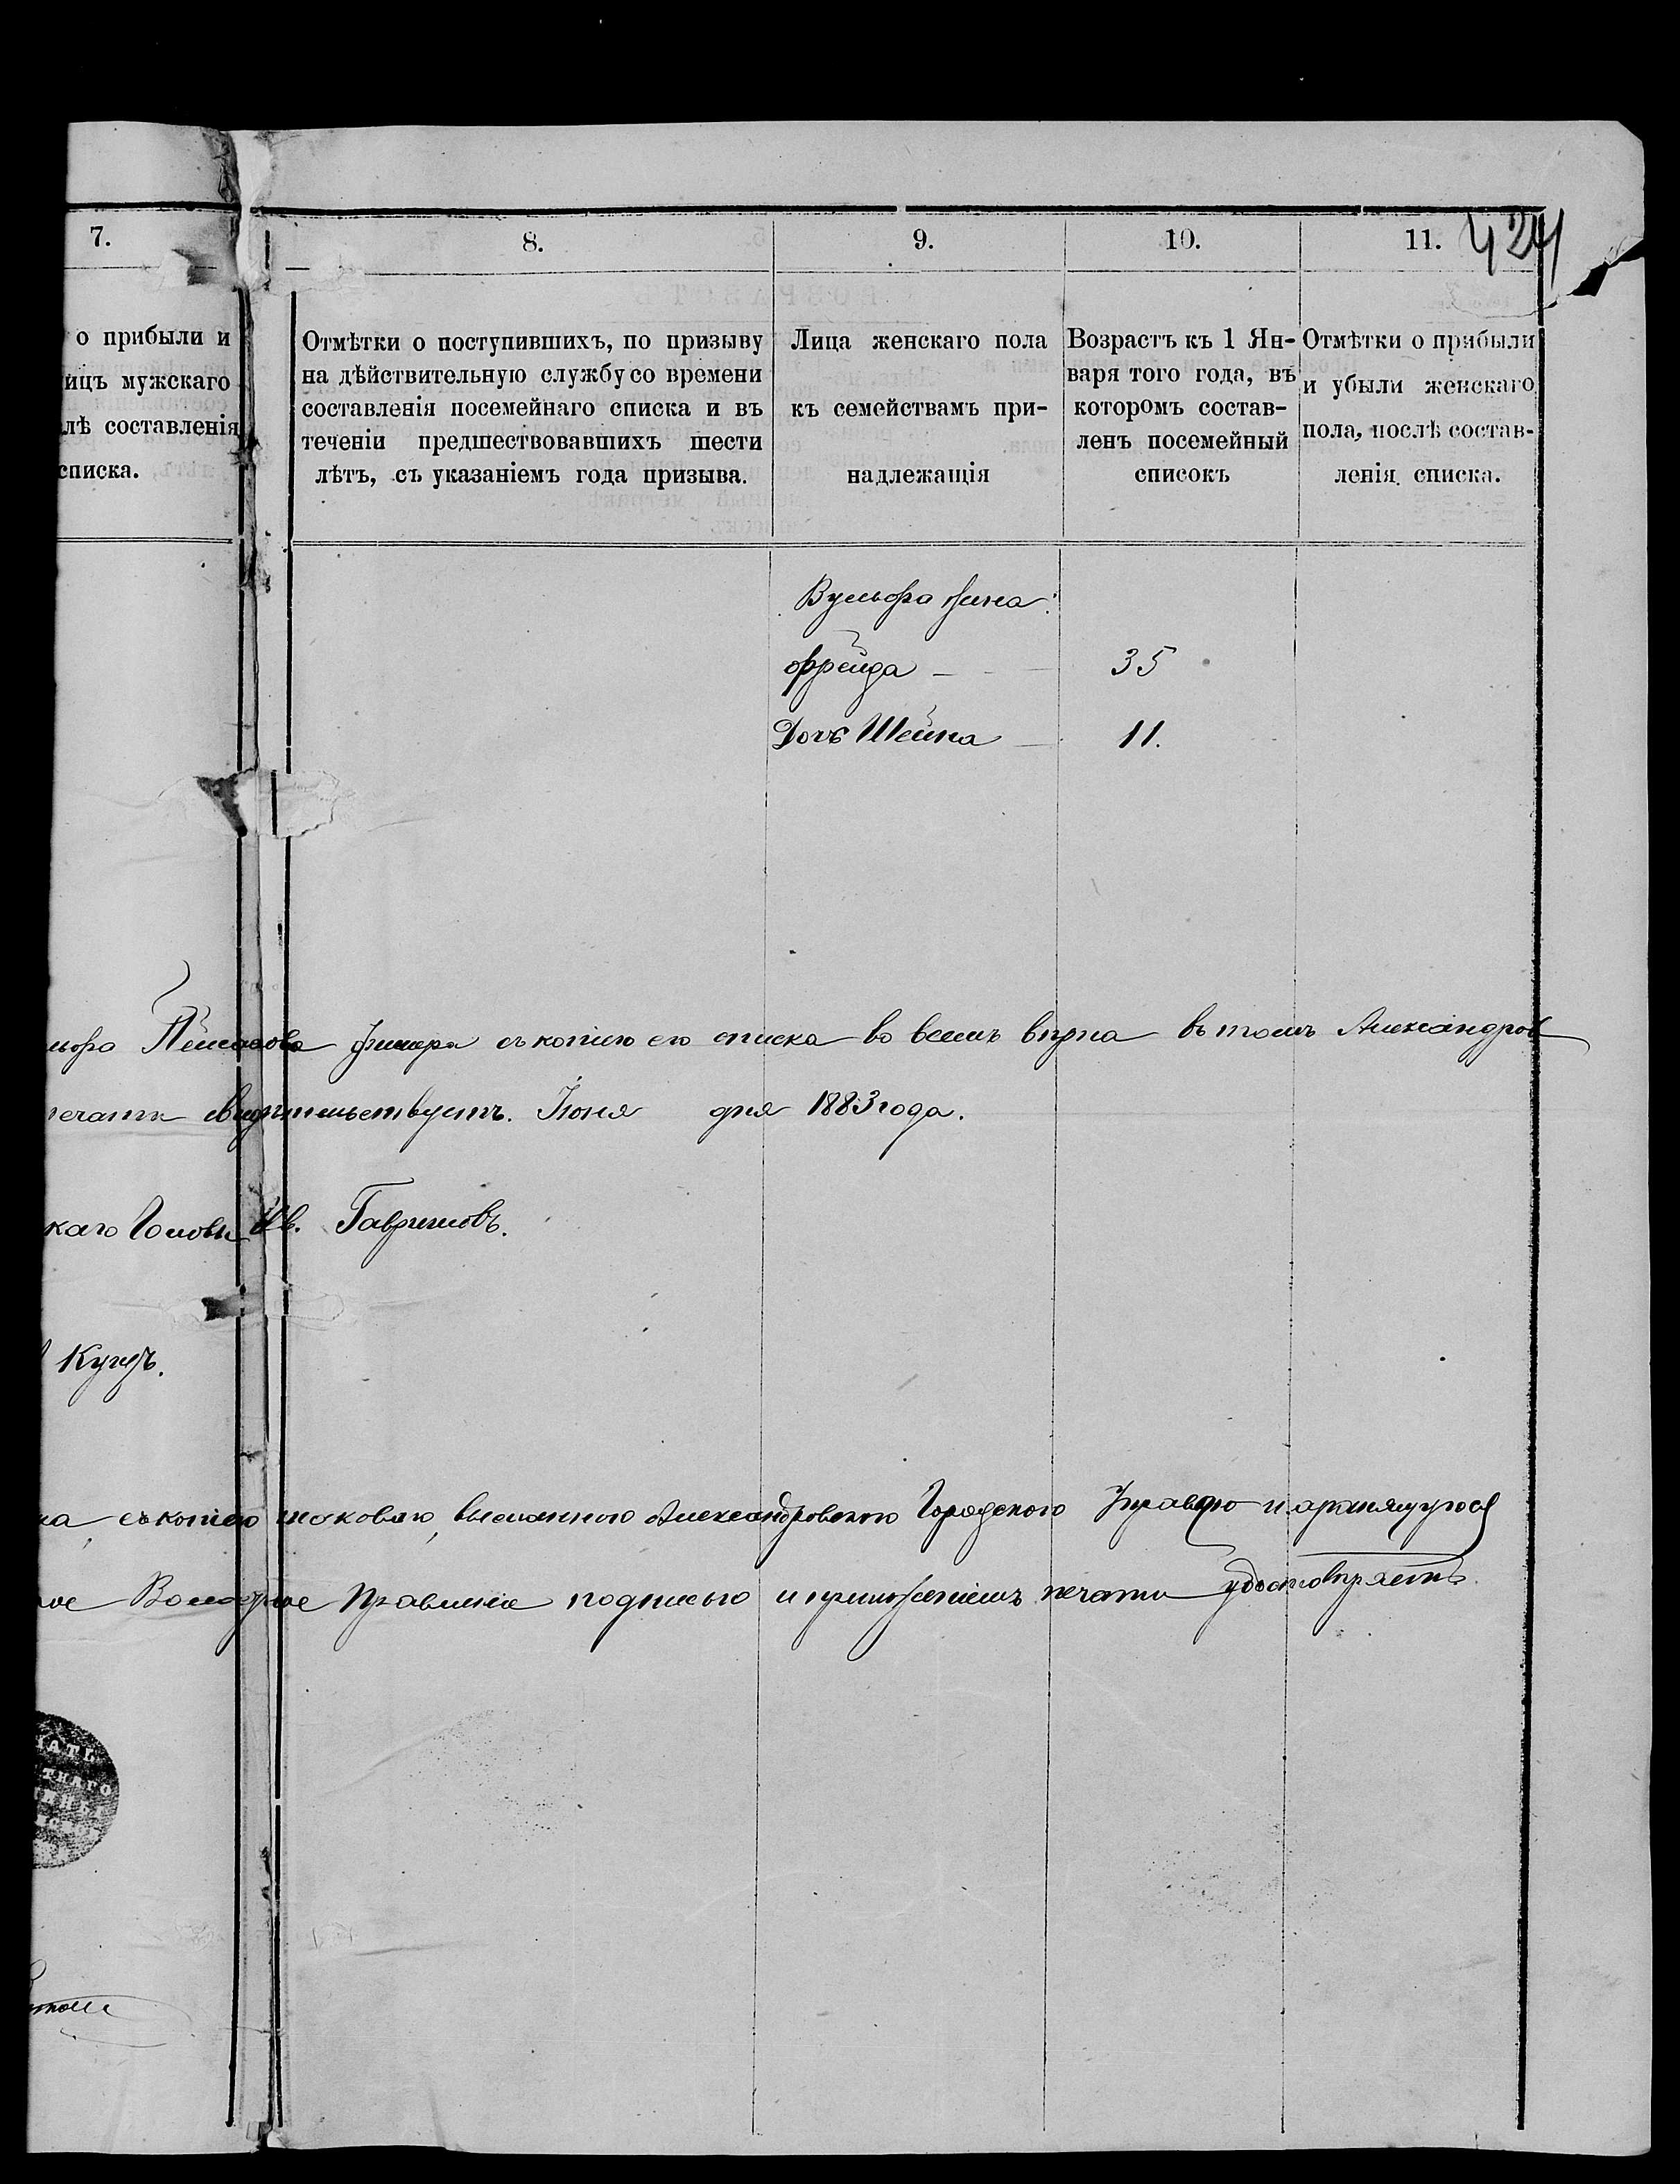 424
7.
8.
9.
10.
11.
о прибыли и
ицъ мужскаго
лѣ составленія
списка.
Отмѣтки о поступившихъ, по призыву
на дѣйствительную службу со времени
составленія посемейнаго списка и въ
теченіи предшествовавшихъ шести
лѣтъ, съ указаніемъ года призыва.
Лица женскаго пола
къ семействамъ при-
надлежащія
Возрастъ къ 1 Ян-
варя того года, въ
которомъ состав-
ленъ посемейный
списокъ
Отмѣтки о прибыли
и убыли женскаго
пола, послѣ состав-
ленія списка.
Вульфа жена:
Фрейда — 35
Дочь Шейна — 11.
льфа Пейсахова съ копіею его списка во всемъ вѣрна въ томъ Александров
печати свидѣтельствуетъ. Іюня дня 1883 года.
каго Головы Ив. Гавриловъ.
на съ копіею таковою, высланною Александровскою Городскою Управою и хранящуюся
ное Волостное Правленіе подписью и приложеніемъ печати удостовѣряетъ